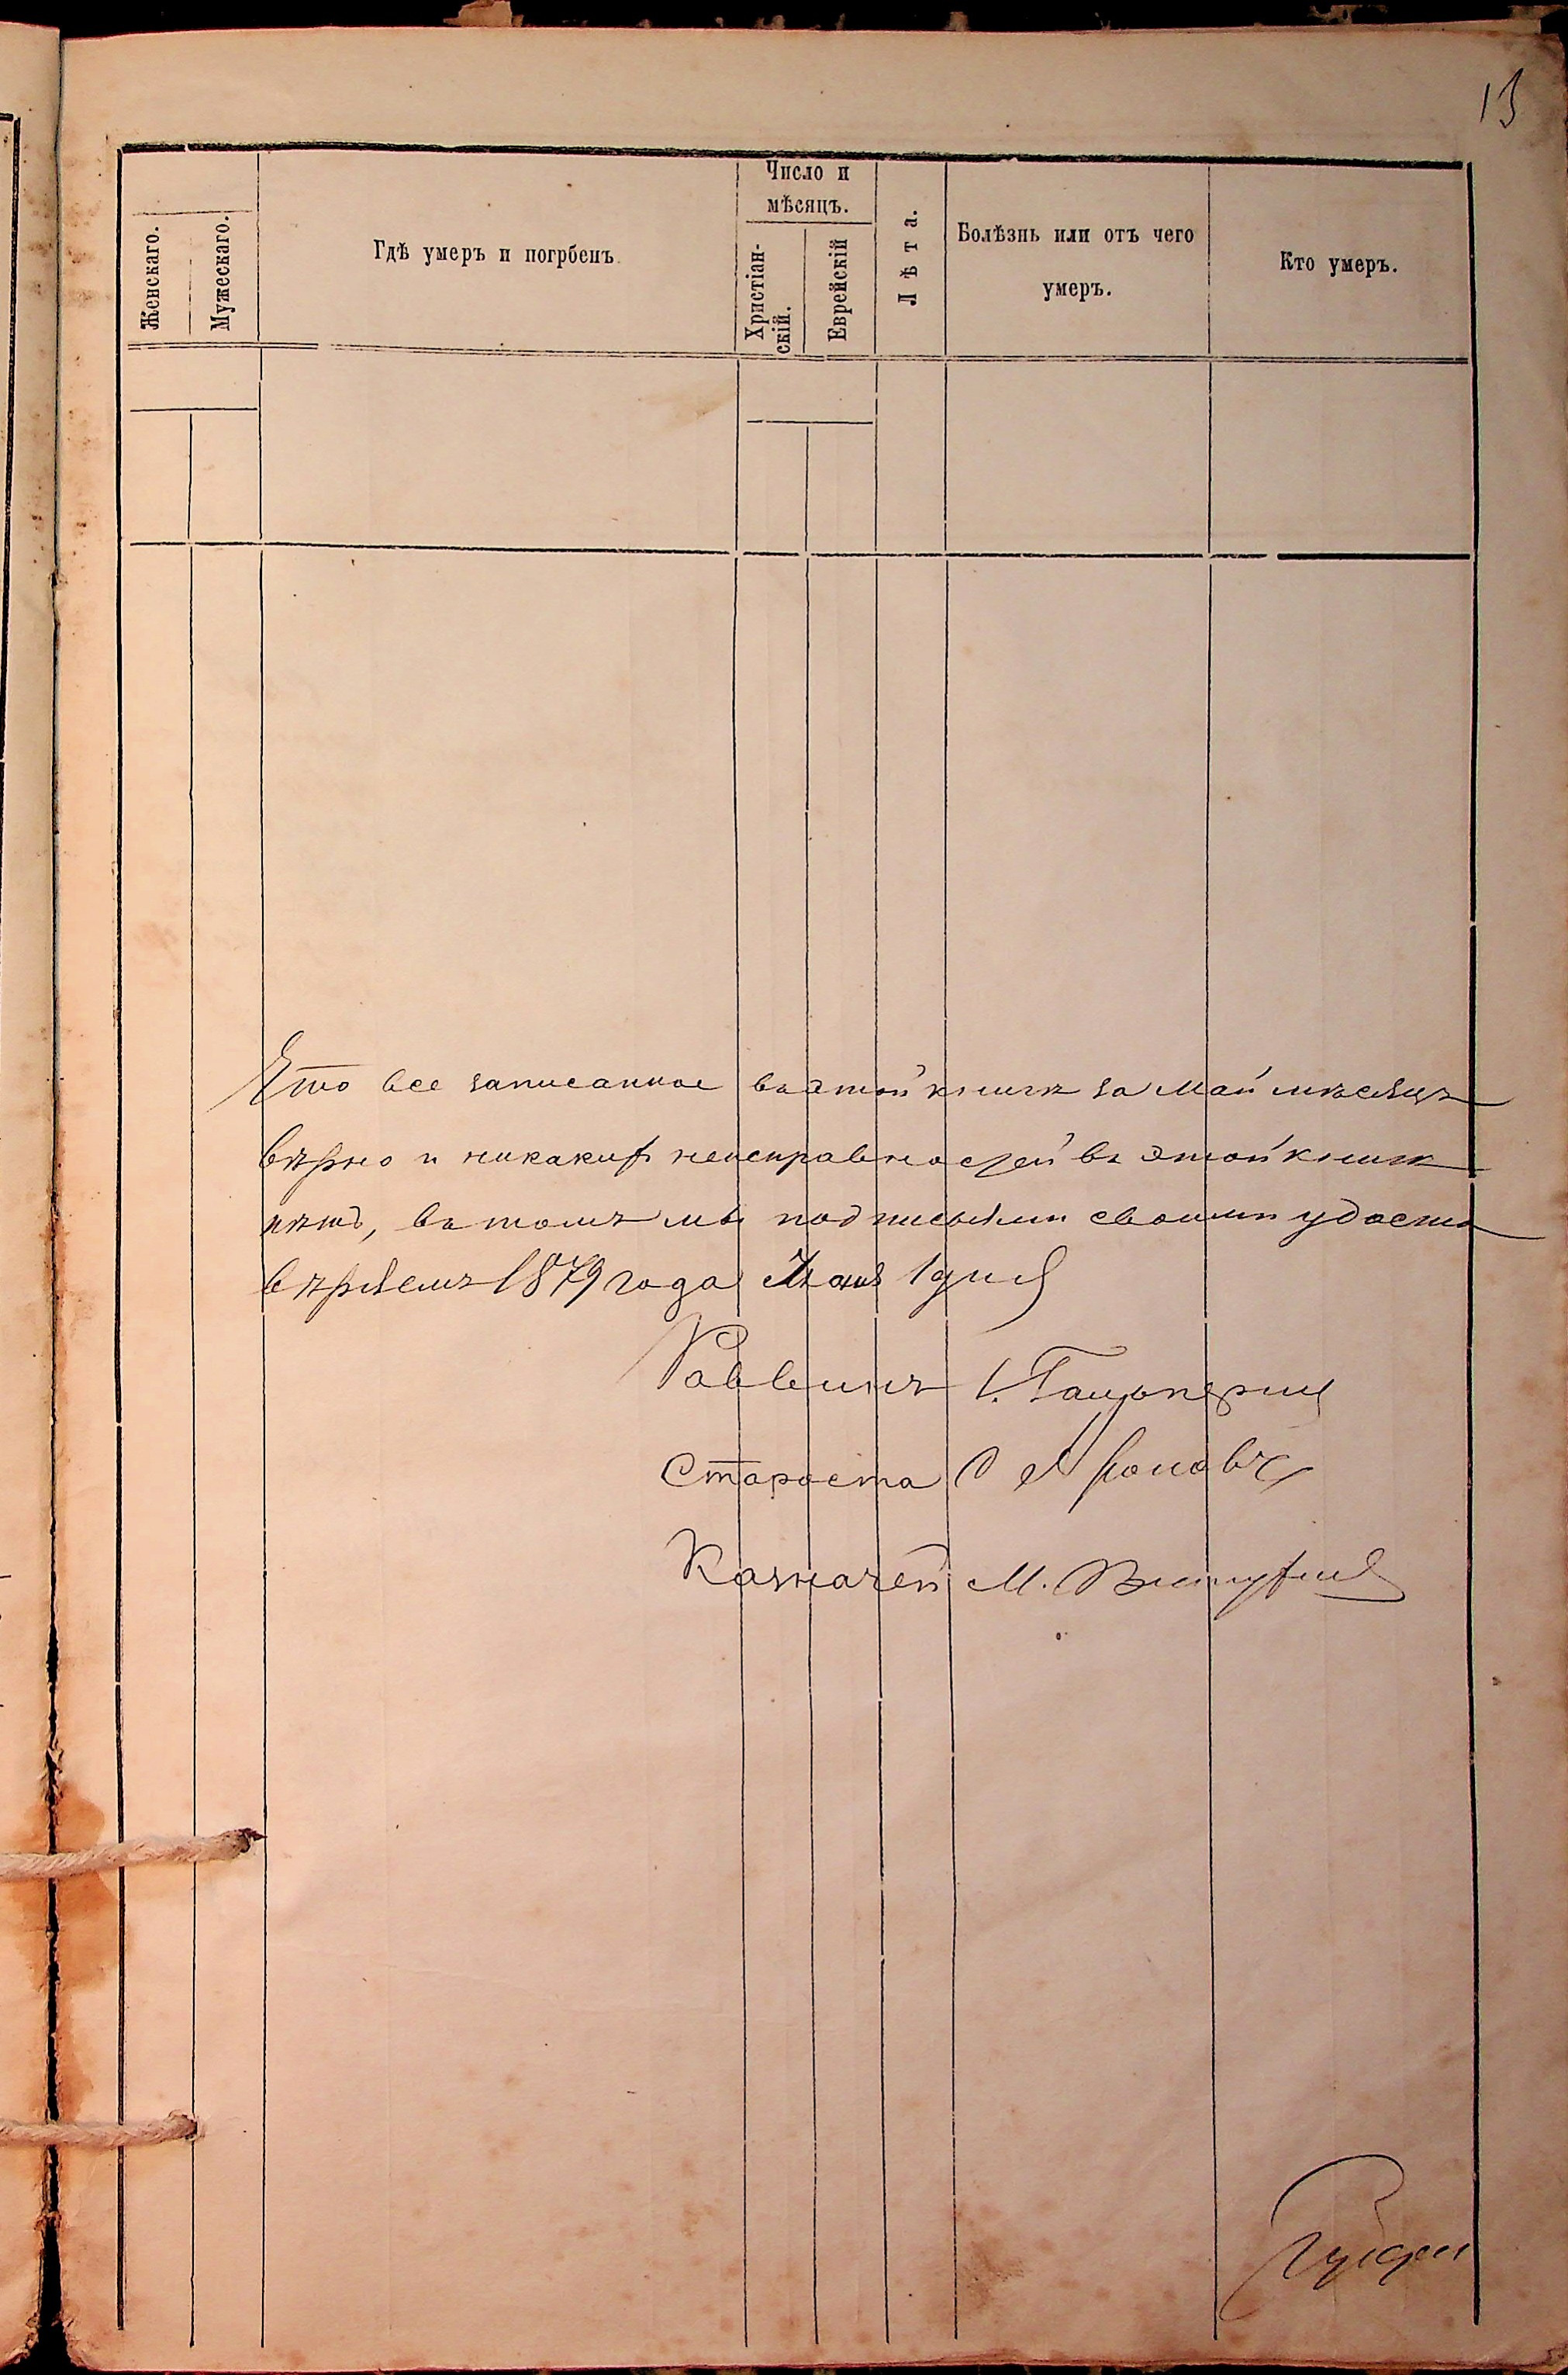 13
Женскаго.
Мужескаго.
Гдѣ умеръ и погрбенъ
Число и
мѣсяцъ.
Христіан-
скій.
Еврейскій
Лѣта.
Болѣзнь или отъ чего
умеръ.
Кто умеръ.
Что все записанное въ этой книгѣ за Май мѣсяцъ
вѣрно и никакихъ неисправностей въ этой книгѣ
нѣтъ, въ томъ мы подписьями своими удосто
вѣряемъ 1879 года Іюня 1 дня
Раввинъ І. Гальперин
Староста
Казначей М.